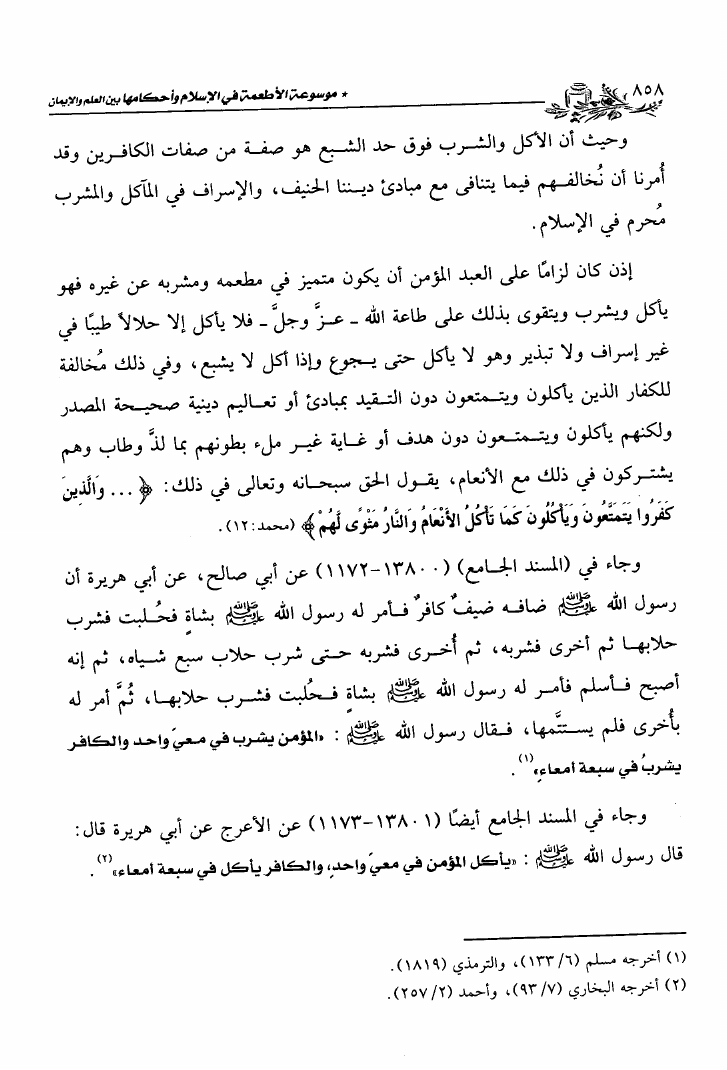 ٨٥٨ * موسوعة الأطعمة في الإسلام وأحكامها بين العلم والإيمان
وحيث أن الأكل والشرب فوق حد الشبع هو صفة من صفات الكافرين وقد
أُمرنا أن نُخالفهم فيما يتنافى مع مبادئ ديننا الحنيف، والإسراف في المآكل والمشرب
مُحرم في الإسلام.
إذن كان لزامًا على العبد المؤمن أن يكون متميز في مطعمه ومشربه عن غيره فهو
يأكل ويشرب ويتقوى بذلك على طاعة الله ـ عزَّ وجلَّ ـ فلا يأكل إلا حلالاً طيبًا في
غير إسراف ولا تبذير وهو لا يأكل حتى يجوع وإذا أكل لا يشبع، وفي ذلك مُخالفة
للكفار الذين يأكلون ويتمتعون دون التقيد بمبادئ أو تعاليم دينية صحيحة المصدر
ولكنهم يأكلون ويتمتعون دون هدف أو غاية غير ملء بطونهم بما لذَّ وطاب وهم
يشتركون في ذلك مع الأنعام، يقول الحق سبحانه وتعالى في ذلك: ﴿ ... وَالَّذِينَ
كَفَرُوا يَتَمَتَّعُونَ وَيَأْكُلُونَ كَمَا تَأْكُلُ الأَنْعَامُ وَالنَّارُ مَثْوًى لَّهُمْ ﴾ (محمد:١٢).
وجاء في (المسند الجامع) (١٣٨٠٠-١١٧٢) عن أبي صالح، عن أبي هريرة أن
رسول الله ﷺ ضافه ضيفٌ كافرٌ فأمر له رسول الله ﷺ بشاةٍ فحُلبت فشرب
حلابها ثم أخرى فشربه، ثم أُخرى فشربه حتى شرب حلاب سبع شياه، ثم إنه
أصبح فأسلم فأمر له رسول الله ﷺ بشاةٍ فحُلبت فشرب حلابها، ثُمَّ أمر له
بأُخرى فلم يستتَّمها، فقال رسول الله ﷺ : «المؤمن يشرب في معيً واحد والكافر
يشربُ في سبعة أمعاءٍ»(١).
وجاء في المسند الجامع أيضًا (١٣٨٠١-١١٧٣) عن الأعرج عن أبي هريرة قال:
قال رسول الله ﷺ : «يأكل المؤمن في معيً واحدٍ، والكافر يأكل في سبعة أمعاء»(٢).
(١) أخرجه مسلم (٦/١٣٣)، والترمذي (١٨١٩).
(٢) أخرجه البخاري (٧/٩٣)، وأحمد (٢/٢٥٧).